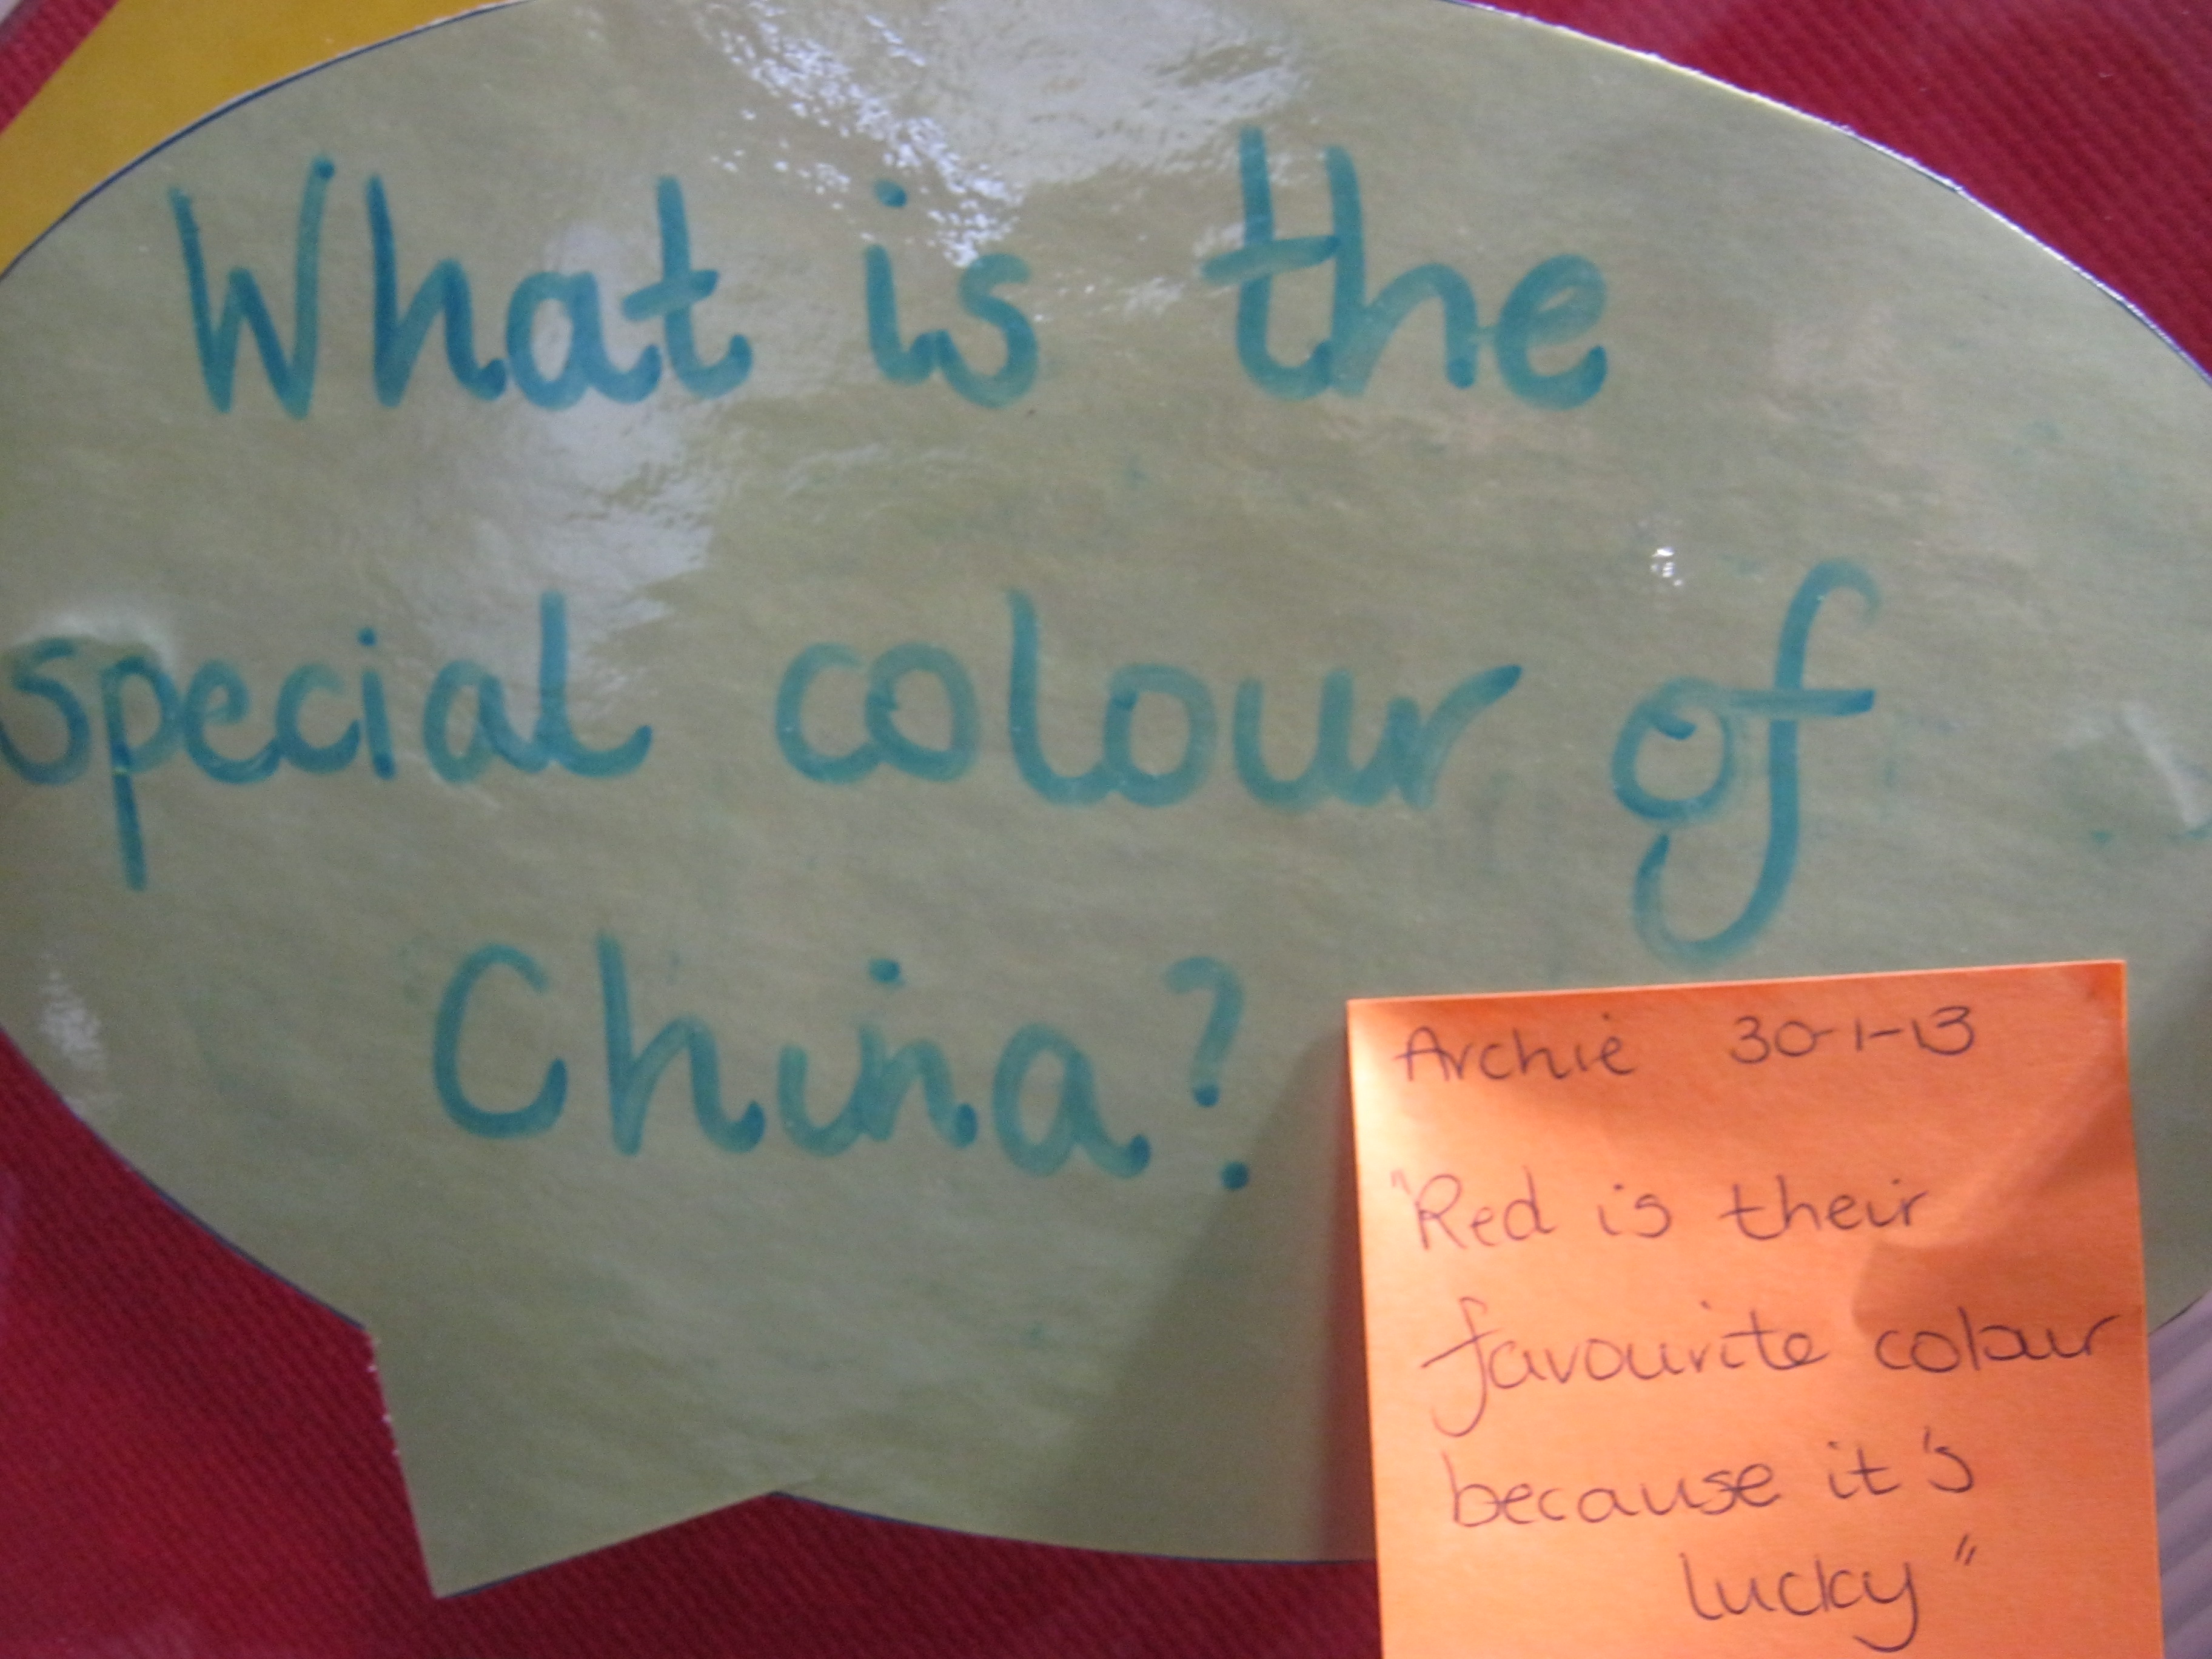 What is the
special colour of
China?
Archie 30-1-13
"Red is their
favourite colour
because it's
lucky"